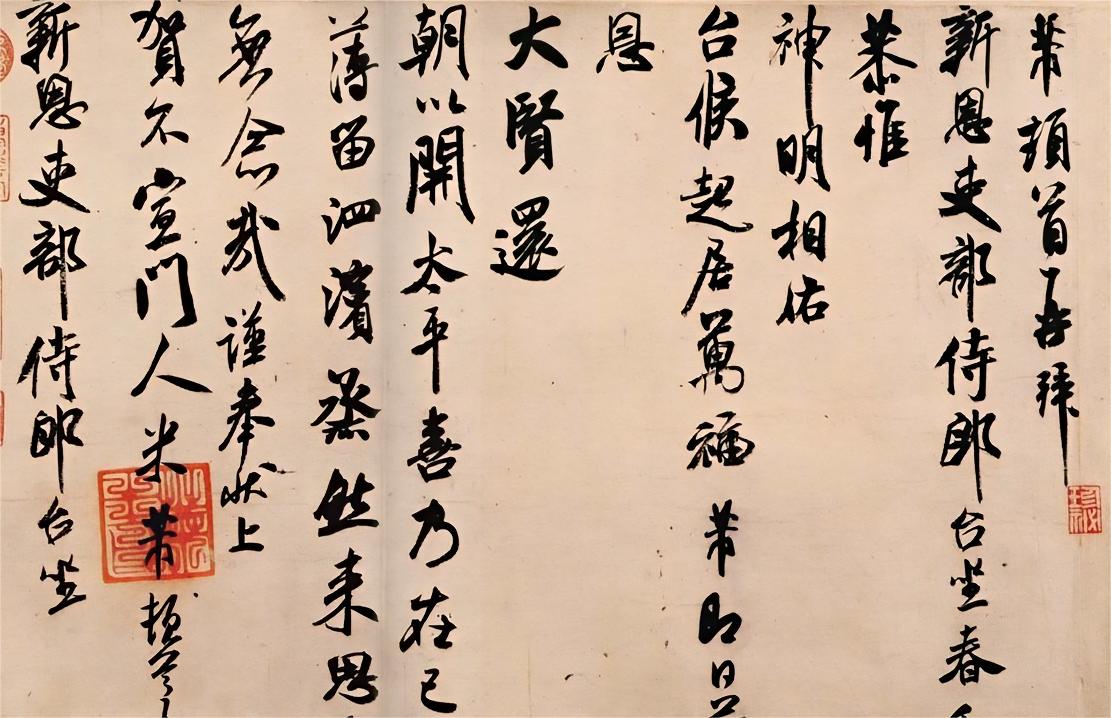 芾頓首再拜
新恩吏部侍郎台坐春
恭惟
神明相佑
台候起居萬福芾即日
恩
大賢還
朝以開太平喜乃在己
薄留泗濱烝然來思
無念哉謹奉狀上
賀不宣門人米芾頓首
新恩吏部侍郎台坐
珍秘